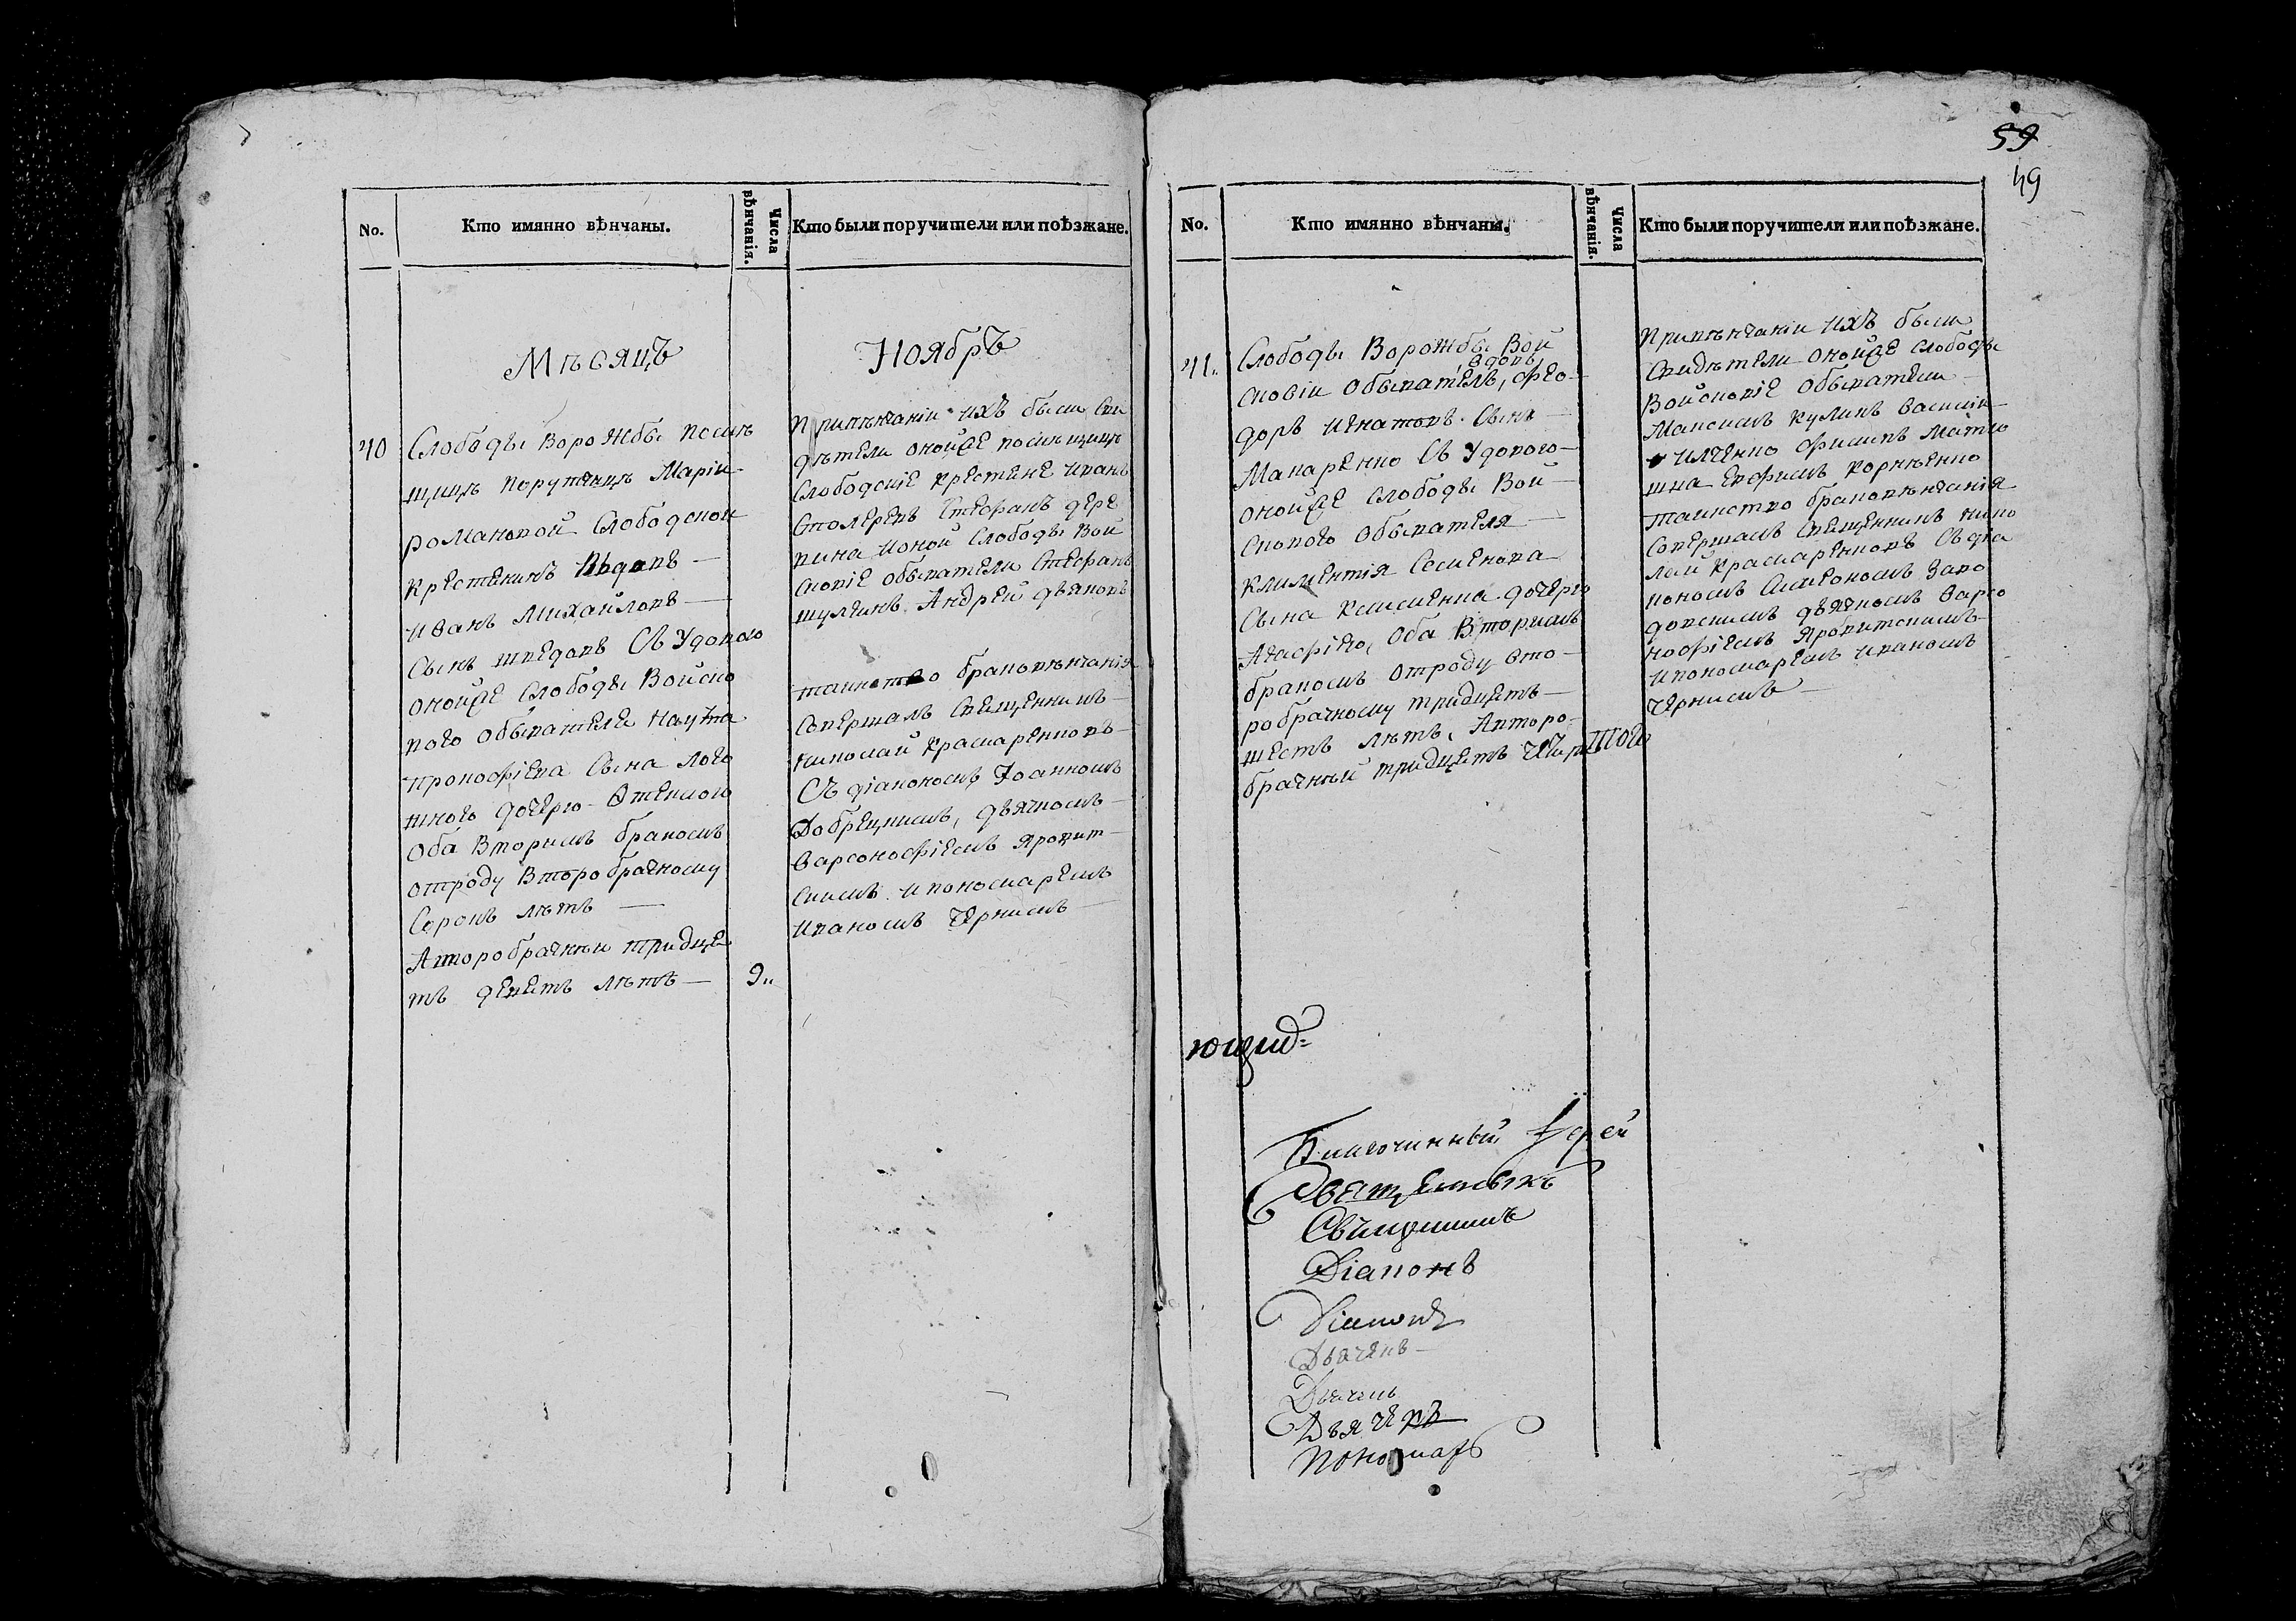 59
49
No.
Кто имянно вѣнчаны.
Числа вѣнчанія.
Кто были поручители или поѣзжане.
Мѣсяцъ
Ноябръ
40
Слободы Ворожбы помѣ
щицѣ порутчицѣ Маріи
романовой Слободской
крестенинъ Вдовъ —
иванъ михайловъ —
Сынъ шведовъ Съ Удовою
онойже Слободы Войско
вого обывателе наума
прокофіева Сына лого
шного дочерю
Оба Вторимъ бракомъ
отроду Второбрачному
Сорокъ лѣтъ —
Авторобрачнѣи тридце
тъ деветъ лѣтъ —
9..
Привѣнчаніи ихъ были Сви
дѣтели онойже помѣщицѣ
Слободскіе крестене иванъ
Столеревъ Стефанъ дере
вина ионой Слободы Вой
сковіе обыватели Стефанъ
шулгинъ Андрей дьяковъ
таинство браковѣнчанія
Совершалъ Священникъ —
николай крамаренковъ —
Съ діакономъ Іоанномъ
Добрецкимъ, дьячкомъ —
варсонофіемъ
Скимъ ипономаремъ
иваномъ чернимъ —
No.
Кто имянно вѣнчаны.
Числа вѣнчанія.
Кто были поручители или поѣзжане.
41..
Слободы Ворожбы Вой
вдовъ
сковіи обывателъ, Фео-
доръ игнатовъ Сынъ —
Макаренко Съ Удовою —
онойже Слободы Вой —
скового обывателя —
климентія Семенова
Сына клименка дочерю
Агафіею, Оба Вторимъ
бракомъ отроду вто-
робрачному тридцетъ —
шесть лѣтъ, Авторо-
брачнѣи тридцетъ
Привѣнчаніи ихъ были
Свидѣтели онойже Слободы
Войсковіе обыватели
Максимъ куликъ василій
илченко филипъ
шка Ефимъ корнѣенко
таинство браковѣнчанія
Совершалъ Священникъ нико
лай крамаренковъ Съ діа
кономъ Симеономъ
дьячкомъ варсо
нофіемъ
ипономаремъ иваномъ
чернимъ —
ющид=
Благочинный Іерей
Священникъ
Священникъ
Діаконъ
Діаконъ
Дьячекъ —
Дьячекъ
Дьячекъ
Пономарь